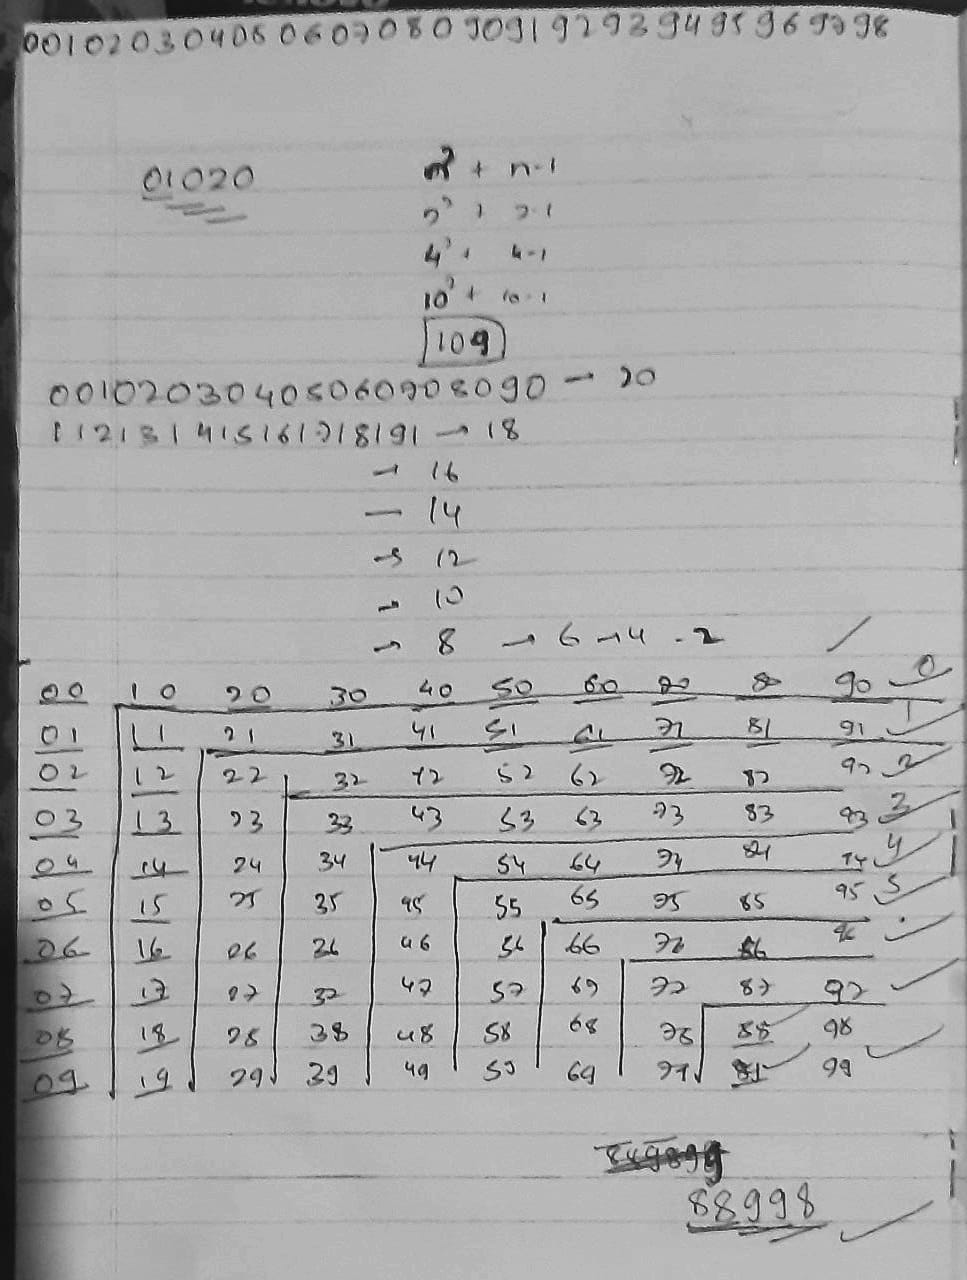 001020304050607080909192939495969798
01020
n² + n-1
2² + 2-1
4² + 4-1
10² + 10-1
109
00102030405060708090 → 20
112131415161718191 → 18
→ 16
— 14
→ 12
→ 10
→ 8 → 6 → 4 - 2
00 10 20 30 40 50 60 70 80 90 0
01 11 21 31 41 51 61 71 81 91 1
02 12 22 32 42 52 62 72 82 92 2
03 13 23 33 43 53 63 73 83 93 3
04 14 24 34 44 54 64 74 84 94 4
05 15 25 35 45 55 65 75 85 95 5
06 16 26 36 46 56 66 76 86 96
07 17 27 37 47 57 67 77 87 97
08 18 28 38 48 58 68 78 88 98
09 19 29 39 49 59 69 79 89 99
88998